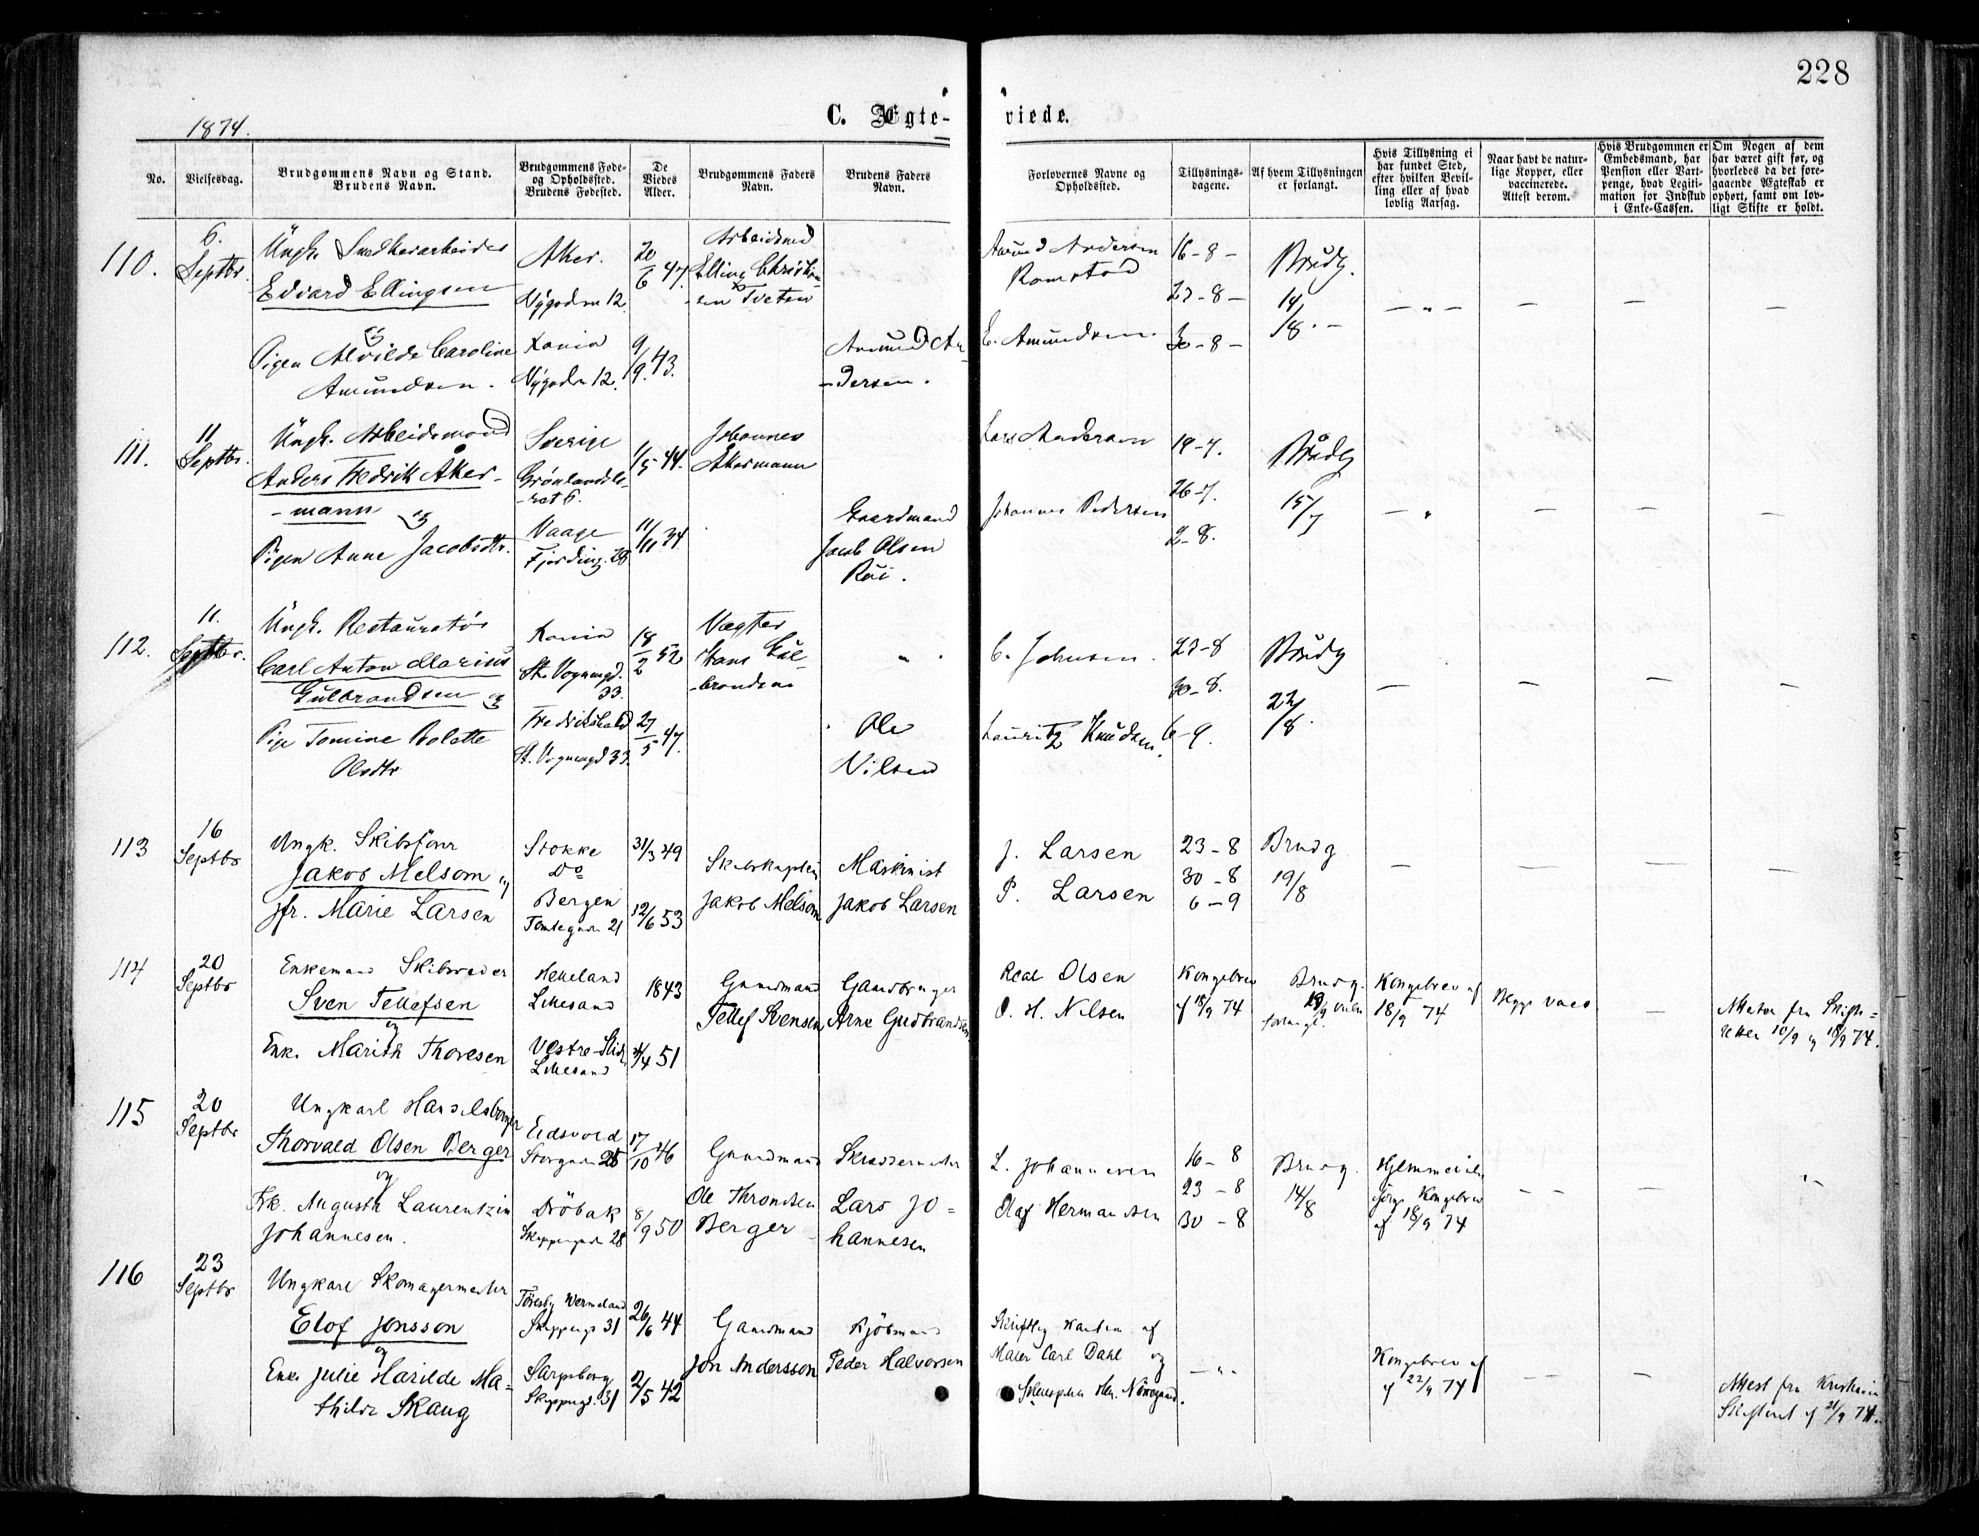 228
1874.
C. Ægte-
viede.
No.
Vielsesdag.
Brudgommens Navn og Stand.
Brudens Navn.
Brudgommens Føde-
og Opholdssted.
Brudens Fødested.
De
Viedes
Alder.
Brudgommens Faders
Navn.
Brudens Faders
Navn.
Forlovernes Navne og
Opholdssted.
Tillysnings-
dagene.
Af hvem Tillysningen
er forlangt.
Hvis Tillysning ei
har fundet Sted,
efter hvilken Bevil-
ling eller af hvad
lovlig Aarsag.
Naar havt de natur-
lige Kopper, eller
vaccinerede.
Attest derom.
Hvis Brudgommen er
Embedsmand, har
Pension eller Vart-
penge, hvad Legiti-
mation for Indskud
i Enke-Cassen.
Om Nogen af dem
har været gift før, og
hvorledes da det fore-
gaaende Ægteskab er
ophørt, samt om lov-
ligt Skifte er holdt.
110.
6.
Septbr.
Ungk. Snedkerarbeider
Edvard Ellingsen
og
Pigen Alvilde Caroline
Amundsen.
Aker.
Nygaden 12
Xania
Nygaden 12.
20/6 47.
9/9. 43.
Arbeidsmd
Elling Christian-
sen Tveten
Amund An-
-dersen.
Amund Andersen
Romstad
E. Amundsen.
16-8-
23-8-
30-8-
Brudg.
14/8.-
111.
11
Septbr.
Ungk. Arbeidsmand
Anders Fredrik Åker-
-mann og
Pigen Anne Jacobsdtr.
Sverige
Grønlandsle-
-ret 6.
Vaage
Fjerding. 28
1/5 44.
11/11 34
Johannes
Åkermann
Gaardmand
Jacob Olsen
Rui.
Lars Andersen
Johannes Pedersen
19-7.
26-7.
2-8.
Brudg
15/7
112.
11.
Septbr.
Ungk. Restauratør
Carl Anton Marius
Gulbrandsen og
Pige Tomine Bolette
Olsdtr
Xania
St. Vognmgd.
33.
Fredrikshald
St. Vognmgd 33.
18/2 52
27/5 47.
Vægter
Hans Gul-
-brandsen
Ole
Nilsen
C. Johnsen.
Lauritz Knudsen.
23-8
30-8.
6-9.
Brudg
22/8.
113
16
Septbr
Ungk. Skibsfører
Jakob Melsom og
Jfr. Marie Larsen
Stokke
Do
Bergen
Tomtegaden 21
31/3 49
12/6 53
Skibskaptein
Jakob Melsom
Maskinist
Jakob Larsen
J. Larsen
P. Larsen
23-8
30-8
6-9
Brudg
19/8
114
20
Septbr
Enkemand Skibsreder
Sven Tellefsen
og
Enk. Marith Thoresen
Lillesand
Vestre-Slidre
Lillesand
1843
51
Gaardmand
Tellef Svensen
Gaardbruger
Arne Gudbrandsen
Olsen
O. H. Nilsen
Kongebrev
af 18/9 74
Brudg.
Kongebrev af
18/9 74
Begge vacc
Attester fra Skifte-
retten 10/9 og 18/9 74.
115
20
Septbr
Ungkarl Handelsborger
Thorvald Olsen Berger
og
Frk. Augusta Laurentzin
Johannesen.
Eidsvold
Storgaden 25
Dröbak
Skippergaden 28
17/10 46
8/9 50
Gaardmand
Ole Throndsen
Berger
Skreddermester
Lars Jo-
hannesen
L. Johannesen
Olaf Hermansen
16-8
23-8
30-8
Brudg.
14/8
Hjemmevielse
ifølge Kongebrev
af 18/9 74
116
23
Septbr
Ungkarl Skomagermester
Elof Jonsson
og
Enke Julie Harilde Ma-
thilde Skaug
Wermeland
Skipperg. 31
Sarpsborg
Skipperg. 31
26/6 44
2/5 42
Gaardmand
Jon Andersson
Kjöbmand
Peder Halvorsen
Skriftlig Kaution af
Maler Carl Dahl og
Nörregaard.
Kongebrev af
22/9 74
Attest fra Kristiania
Skifteret af 21/9 74.